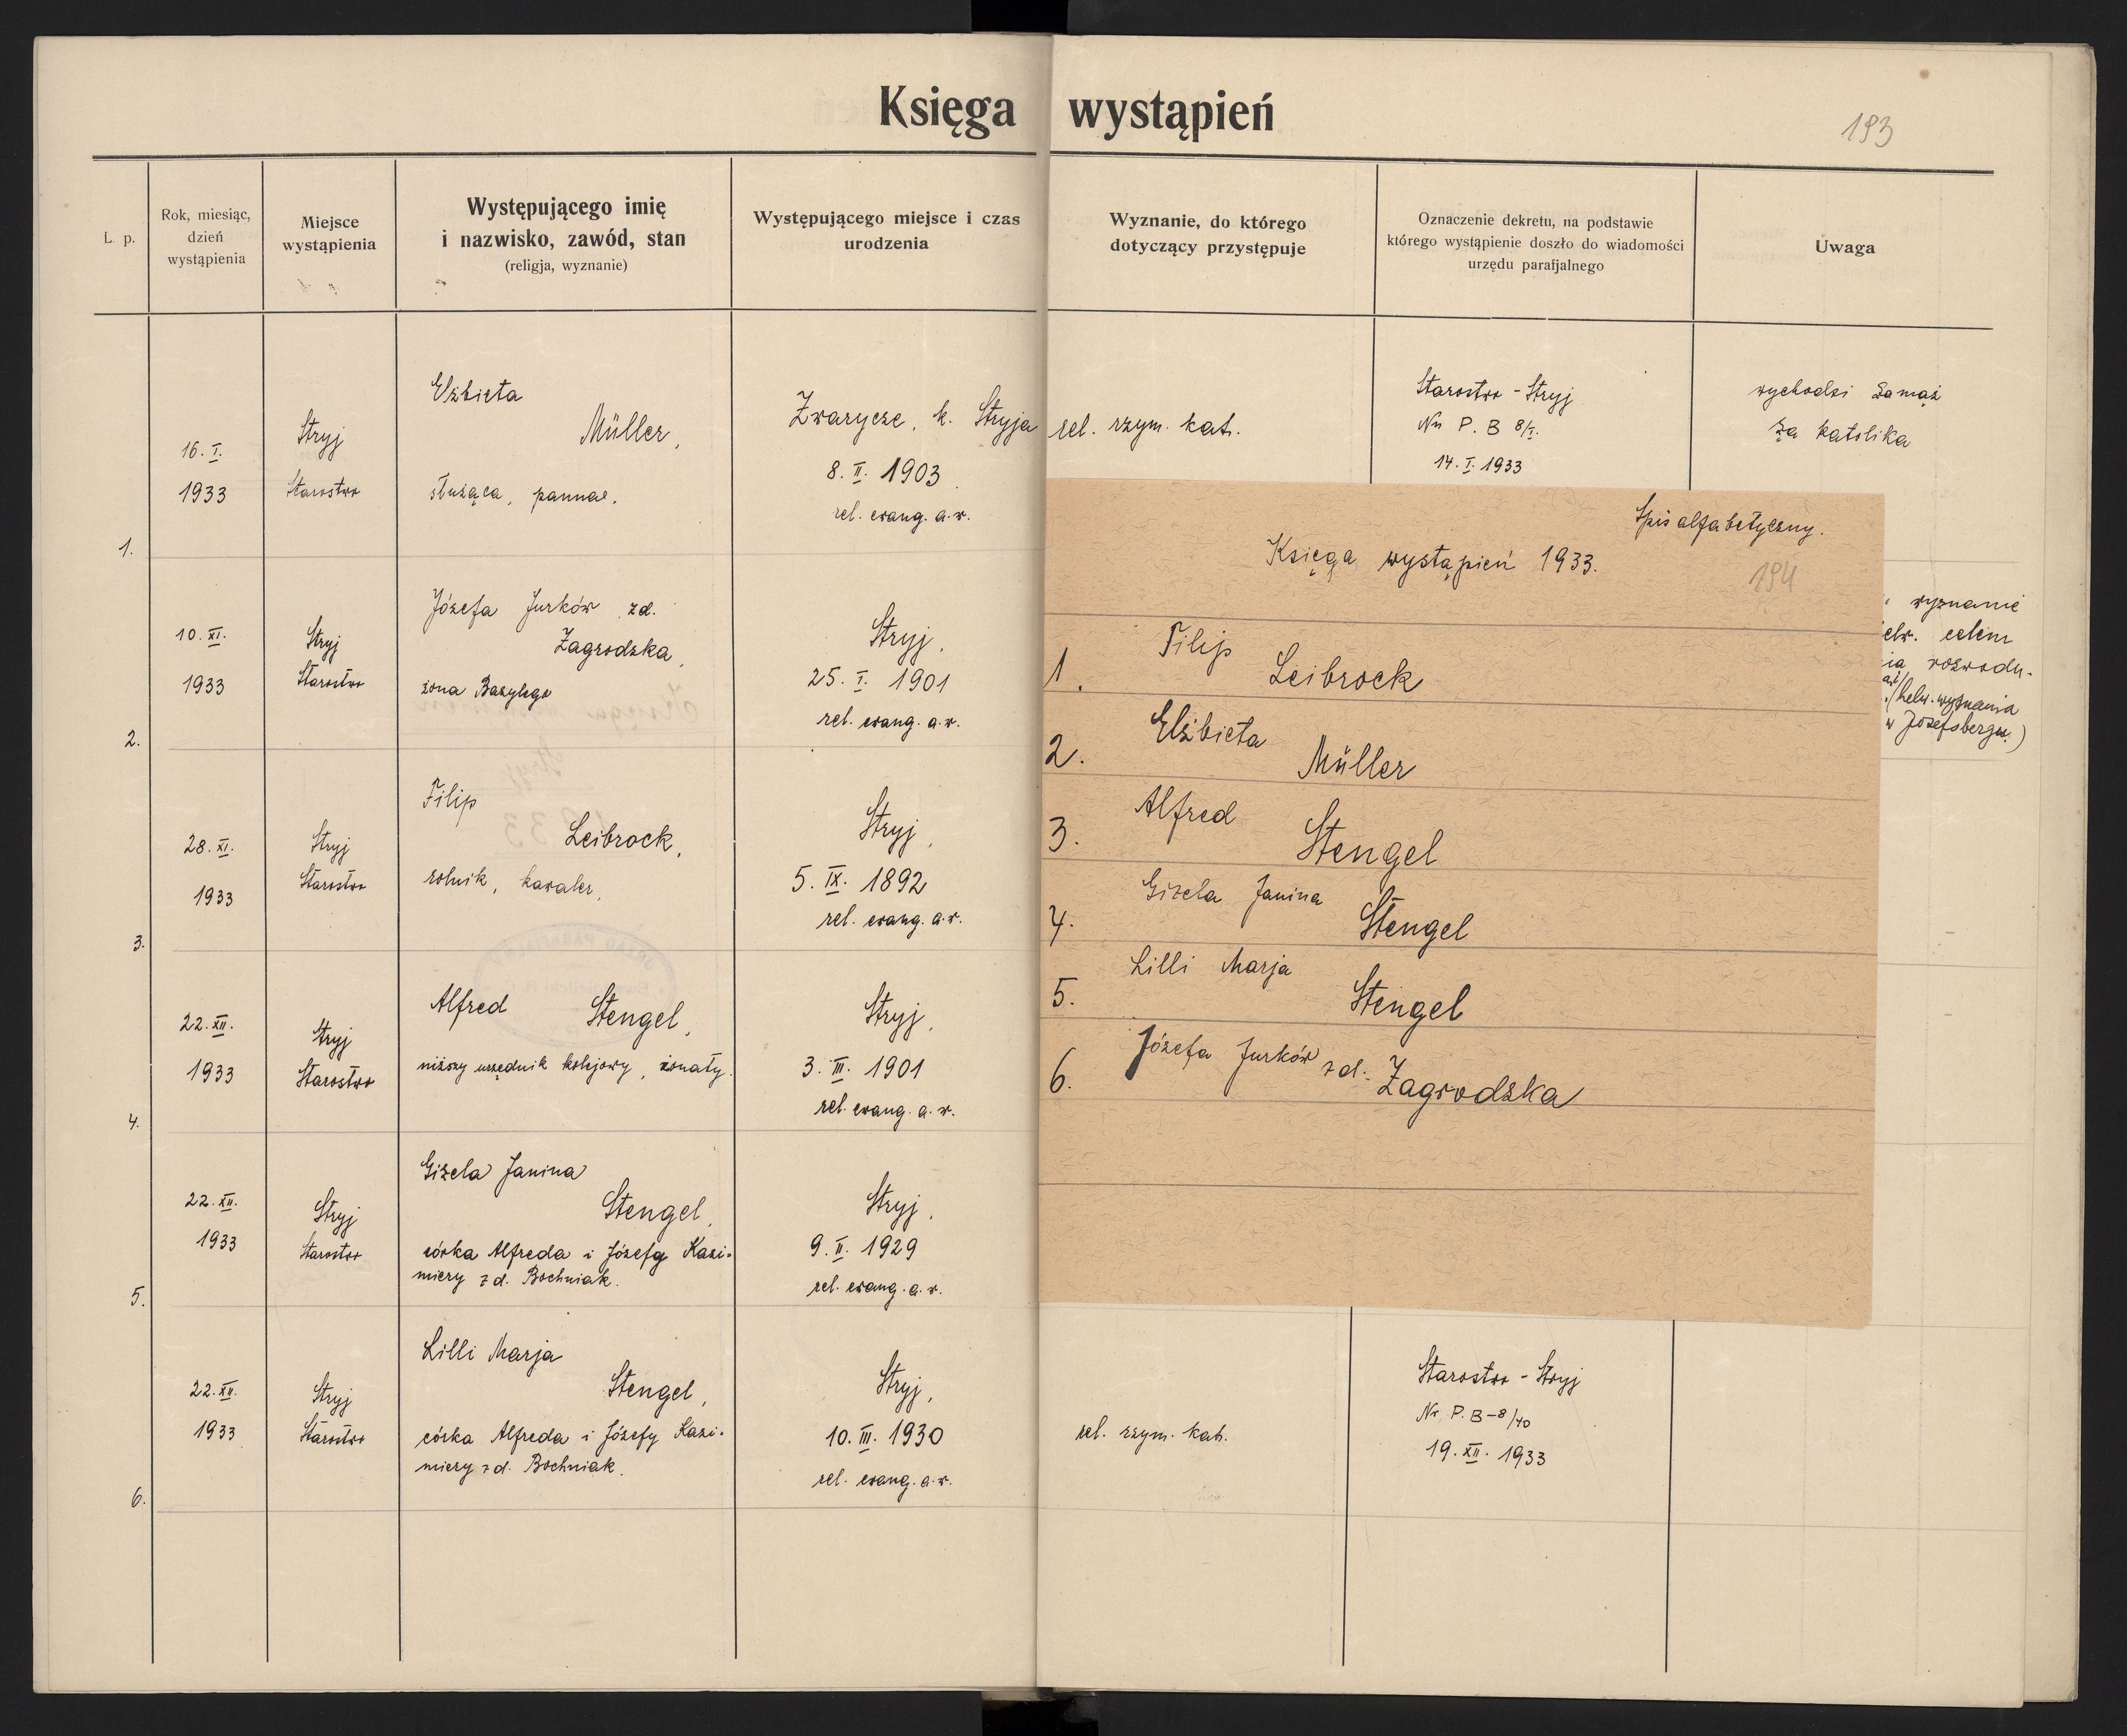 Księga wystąpień
193
L. p.
Rok, miesiąc,
dzień
wystąpienia
Miejsce
wystąpienia
Występującego imię
i nazwisko, zawód, stan
(religja, wyznanie)
Występującego miejsce i czas
urodzenia
Wyznanie, do którego
dotyczący przystępuje
Oznaczenie dekretu, na podstawie
którego wystąpienie doszło do wiadomości
urzędu parafjalnego
Uwaga
1.
16. I.
1933
Stryj
Starostwo
Elżbieta
Müller,
służąca, panna.
Zwarycze, k. Stryja
8. II. 1903
rel. ewang. a. w.
rel. rzym. kat.
Starostwo - Stryj
Nr P. B 8/I.
14. I. 1933
wychodzi zamąż
za katolika
2.
10. XI.
1933
Stryj
Starostwo
Józefa Jurków zd.
Zagrodzka,
żona Bazylego
Stryj,
25. I. 1901
rel. ewang. a. w.
wyznanie
celem
rozwodu.
helw. wyznania
w Josefsbergu.)
3.
28. XI.
1933
Stryj
Starostwo
Filip
Leibrock,
rolnik, kawaler,
Stryj,
5. IX. 1892
rel. ewang. a. w.
4.
22. XII.
1933
Stryj
Starostwo
Alfred Stengel,
niższy urzędnik kolejowy, żonaty.
Stryj,
3. III. 1901
rel. ewang. a. w.
5.
22. XII.
1933
Stryj
Starostwo
Gizela Janina
Stengel,
córka Alfreda i Józefy Kazi-
miery z d. Bochniak.
Stryj,
9. II. 1929
rel. ewang. a. w.
6.
22. XII.
1933
Stryj
Starostwo
Lilli Marja
Stengel,
córka Alfreda i Józefy Kazi-
miery z d. Bochniak.
Stryj,
10. III. 1930
rel. ewang. a. w.
rel. rzym. kat.
Starostwo - Stryj
Nr. P. B-8/40
19. XII. 1933
Spis alfabetyczny.
Księga wystąpień 1933.
194
1. Filip
Leibrock
2. Elżbieta
Müller
3. Alfred
Stengel
4. Gizela Janina
Stengel
5. Lilli Marja
Stengel
6. Józefa Jurków z d. Zagrodzka